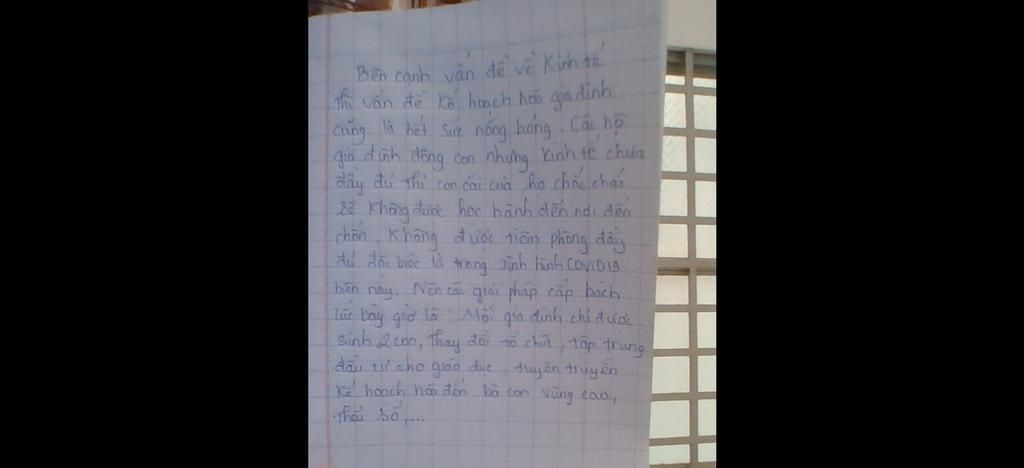 Bên cạnh vấn đề về Kinh tế
thì vấn đề kế hoạch hóa gia đình
cũng là hết sức nóng bỏng. Các hộ
gia đình đông con nhưng kinh tế chưa
đầy đủ thì con cái của họ chắc chắc
sẽ không được học hành đến nơi đến
chốn, không được tiêm phòng đầy
đủ đặc biệc là trong tình hình COVID19
hiện nay. Nên các giải pháp cấp bách
lúc bây giờ là: Mỗi gia đình chỉ được
sinh 2 con, Thay đổi tổ chức, tập trung
đầu tư cho giáo dục, tuyên truyền
kế hoạch hóa đến bà con vùng cao,
thiểu số,...